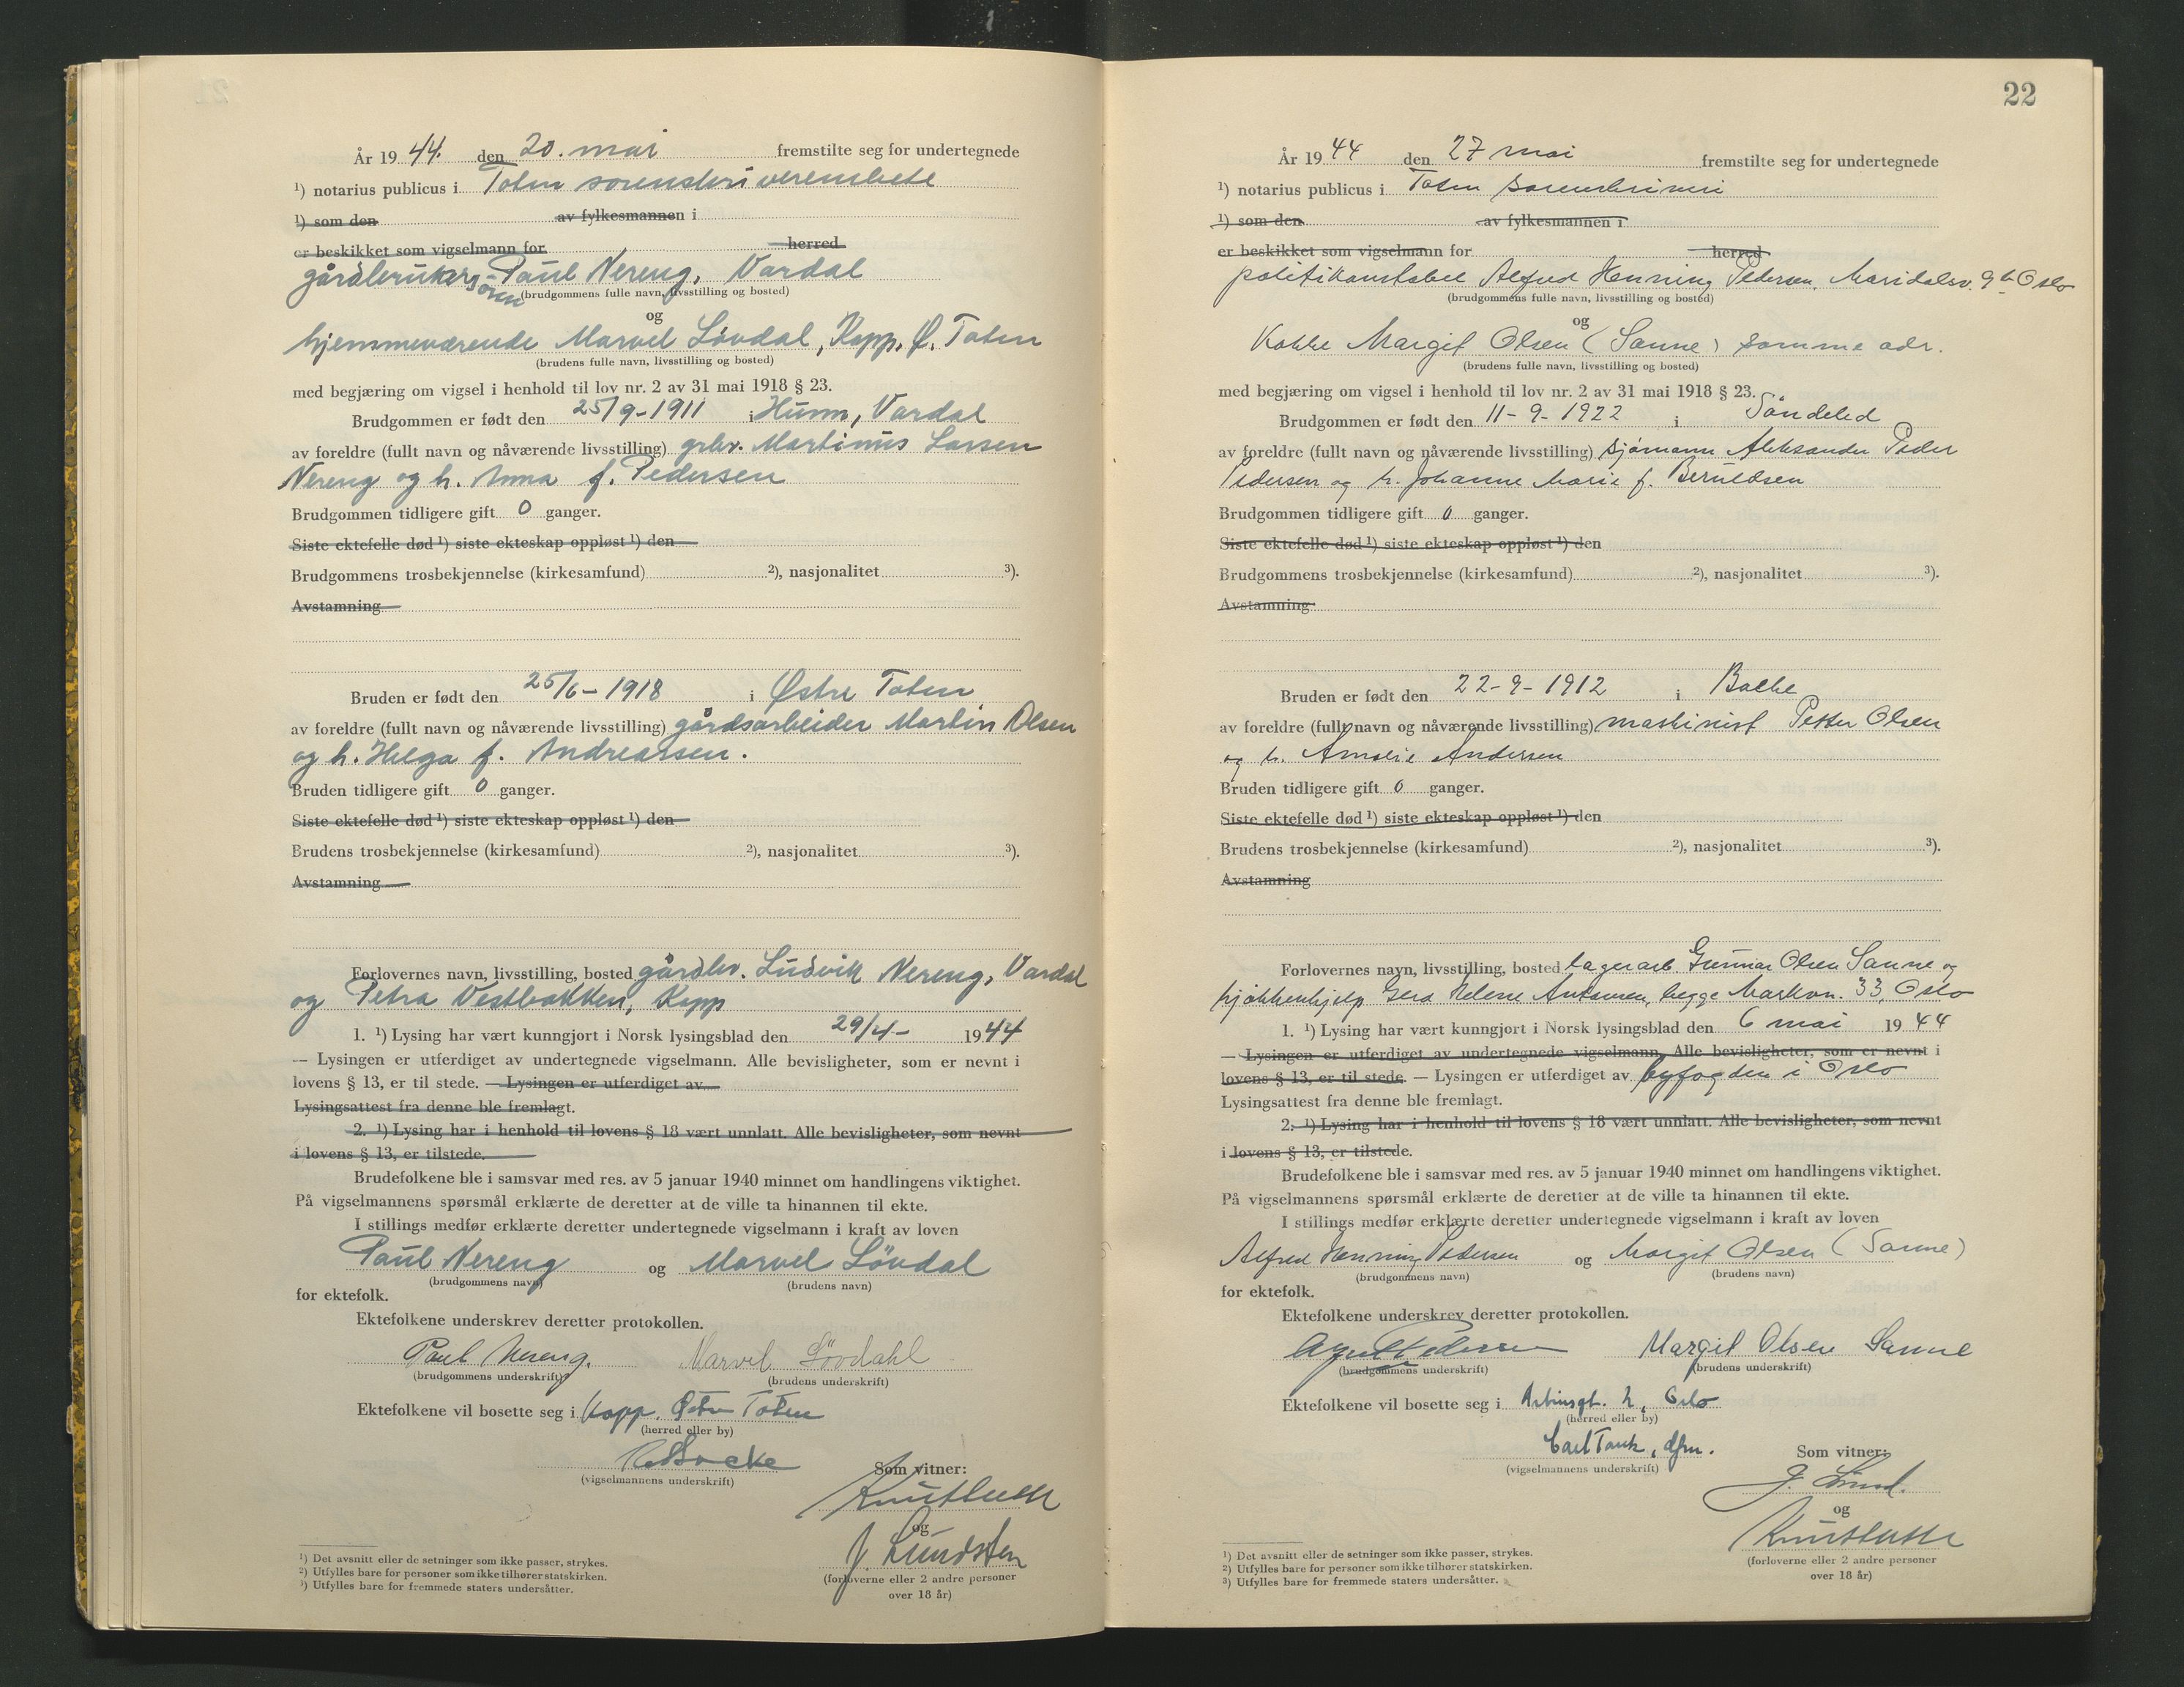 År 19 44. den 20. mai fremstilte seg for undertegnede
¹) notarius publicus i Toten sorenskriverembete
¹) som den av fylkesmannen i
er beskikket som vigselmann for herred
gårdbruker Paul Nereng, Vardal
(brudgommens fulle navn, livsstilling og bosted)
og
hjemmeværende Marvel Løvdal, Kapp, Ø. Toten
(brudens fulle navn, livsstilling og bosted)
med begjæring om vigsel i henhold til lov nr. 2 av 31 mai 1918 § 23.
Brudgommen er født den 25/9-1911 i Hunn, Vardal
av foreldre (fullt navn og nåværende livsstilling) grbr. Martinus Larsen
Nereng og h. Anna f. Pedersen
Brudgommen tidligere gift 0 ganger.
Siste ektefelle død ¹) siste ekteskap oppløst ¹) den
Brudgommens trosbekjennelse (kirkesamfund) ²), nasjonalitet ³).
Avstamning
Bruden er født den 25/6-1918 i Østre Toten
av foreldre (fullt navn og nåværende livsstilling) gårdsarbeider Martin Olsen
og h. Helga f. Andreassen.
Bruden tidligere gift 0 ganger.
Siste ektefelle død ¹) siste ekteskap oppløst ¹) den
Brudens trosbekjennelse (kirkesamfund) ²), nasjonalitet ³).
Avstamning
Forlovernes navn, livsstilling, bosted gårdbr. Ludvik Nereng, Vardal
og Petra Vestbakken, Kapp
1. ¹) Lysing har vært kunngjort i Norsk lysingsblad den 29/4- 1944
— Lysingen er utferdiget av undertegnede vigselmann. Alle bevisligheter, som er nevnt i
lovens § 13, er til stede. — Lysingen er utferdiget av
Lysingsattest fra denne ble fremlagt.
2. ¹) Lysing har i henhold til lovens § 18 vært unnlatt. Alle bevisligheter, som nevnt
i lovens § 13, er tilstede.
Brudefolkene ble i samsvar med res. av 5 januar 1940 minnet om handlingens viktighet.
På vigselmannens spørsmål erklærte de deretter at de ville ta hinannen til ekte.
I stillings medfør erklærte deretter undertegnede vigselmann i kraft av loven
Paul Nereng og Marvel Løvdal
(brudgommens navn) (brudens navn)
for ektefolk.
Ektefolkene underskrev deretter protokollen.
Paul Nereng. Marvel Løvdahl
(brudgommens underskrift) (brudens underskrift)
Ektefolkene vil bosette seg i Kapp. Østre Toten
(herred eller by)
(vigselmannens underskrift)
Som vitner:
og
J. Lundsten
(forloverne eller 2 andre personer
over 18 år)
¹) Det avsnitt eller de setninger som ikke passer, strykes.
²) Utfylles bare for personer som ikke tilhører statskirken.
³) Utfylles bare for fremmede staters undersåtter.
22
År 19 44 den 27 mai fremstilte seg for undertegnede
¹) notarius publicus i Toten sorenskriveri
¹) som den av fylkesmannen i
er beskikket som vigselmann for herred
politikonstabel Alfred Henning Pedersen, Maridalsv. 9 b Oslo
(brudgommens fulle navn, livsstilling og bosted)
og
Kokke Margit Olsen (Sanne) samme adr.
(brudens fulle navn, livsstilling og bosted)
med begjæring om vigsel i henhold til lov nr. 2 av 31 mai 1918 § 23.
Brudgommen er født den 11-9-1922 i Søndeled
av foreldre (fullt navn og nåværende livsstilling) sjømann Aleksander Peder
Pedersen og h. Johanne Marie f. Beruldsen
Brudgommen tidligere gift 0 ganger.
Siste ektefelle død ¹) siste ekteskap oppløst ¹) den
Brudgommens trosbekjennelse (kirkesamfund) ²), nasjonalitet ³).
Avstamning
Bruden er født den 22-9-1912 i Balke
av foreldre (fullt navn og nåværende livsstilling) maskinist Petter Olsen
og h. Amalie Andersen
Bruden tidligere gift 0 ganger.
Siste ektefelle død ¹) siste ekteskap oppløst ¹) den
Brudens trosbekjennelse (kirkesamfund) ²), nasjonalitet ³).
Avstamning
Forlovernes navn, livsstilling, bosted lagerarb. Gunnar Olsen Sanne og
kjøkkenhjelp Gerd Helene Antonsen, begge Markvn. 33, Oslo
1. ¹) Lysing har vært kunngjort i Norsk lysingsblad den 6 mai 19 44
— Lysingen er utferdiget av undertegnede vigselmann. Alle bevisligheter, som er nevnt i
lovens § 13, er til stede. — Lysingen er utferdiget av byfogden i Oslo
Lysingsattest fra denne ble fremlagt.
2. ¹) Lysing har i henhold til lovens § 18 vært unnlatt. Alle bevisligheter, som nevnt
i lovens § 13, er tilstede.
Brudefolkene ble i samsvar med res. av 5 januar 1940 minnet om handlingens viktighet.
På vigselmannens spørsmål erklærte de deretter at de ville ta hinannen til ekte.
I stillings medfør erklærte deretter undertegnede vigselmann i kraft av loven
Alfred Henning Pedersen og Margit Olsen (Sanne)
(brudgommens navn) (brudens navn)
for ektefolk.
Ektefolkene underskrev deretter protokollen.
Margit Olsen Sanne
(brudgommens underskrift) (brudens underskrift)
Ektefolkene vil bosette seg i Oslo
(herred eller by)
Carl Tank, dfm.
(vigselmannens underskrift)
Som vitner:
J. Lund.
og
(forloverne eller 2 andre personer
over 18 år)
¹) Det avsnitt eller de setninger som ikke passer, strykes.
²) Utfylles bare for personer som ikke tilhører statskirken.
³) Utfylles bare for fremmede staters undersåtter.